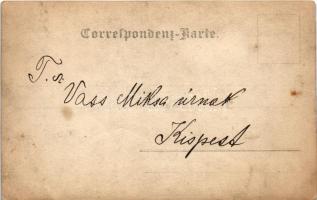 Correspondenz-Karte.
T. sz.
Vass Miksa úrnak
Kispest